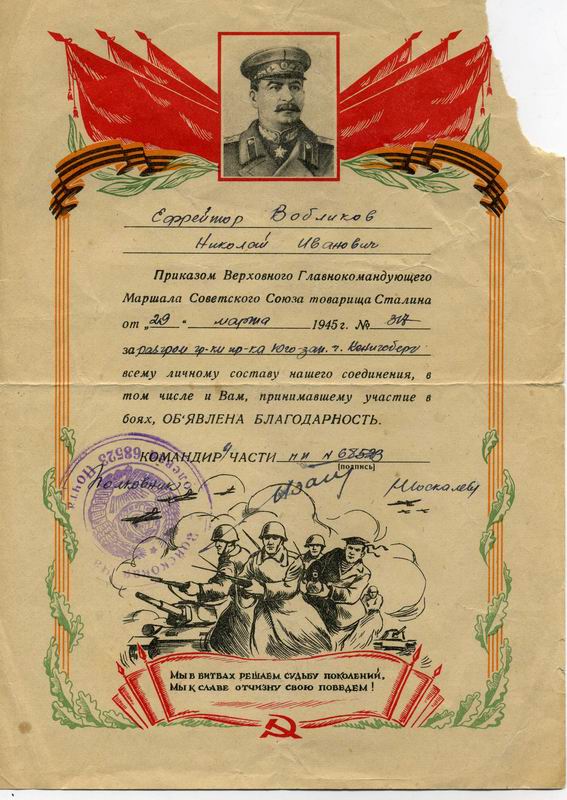 Ефрейтор Вобликов
Николай Иванович
Приказом Верховного Главнокомандующего
Маршала Советского Союза товарища Сталина
от „29“ марта 1945 г. № 317
за разгром гр-ки пр-ка юго-зап. г. Кенигсберг
всему личному составу нашего соединения, в
том числе и Вам, принимавшему участие в
боях, ОБ'ЯВЛЕНА БЛАГОДАРНОСТЬ.
КОМАНДИР ЧАСТИ пп № 68523
(подпись)
Полковник Москалев
Полевая Почта 68523
Войсковая часть
МЫ В БИТВАХ РЕШАЕМ СУДЬБУ ПОКОЛЕНИЙ,
МЫ К СЛАВЕ ОТЧИЗНУ СВОЮ ПОВЕДЕМ!